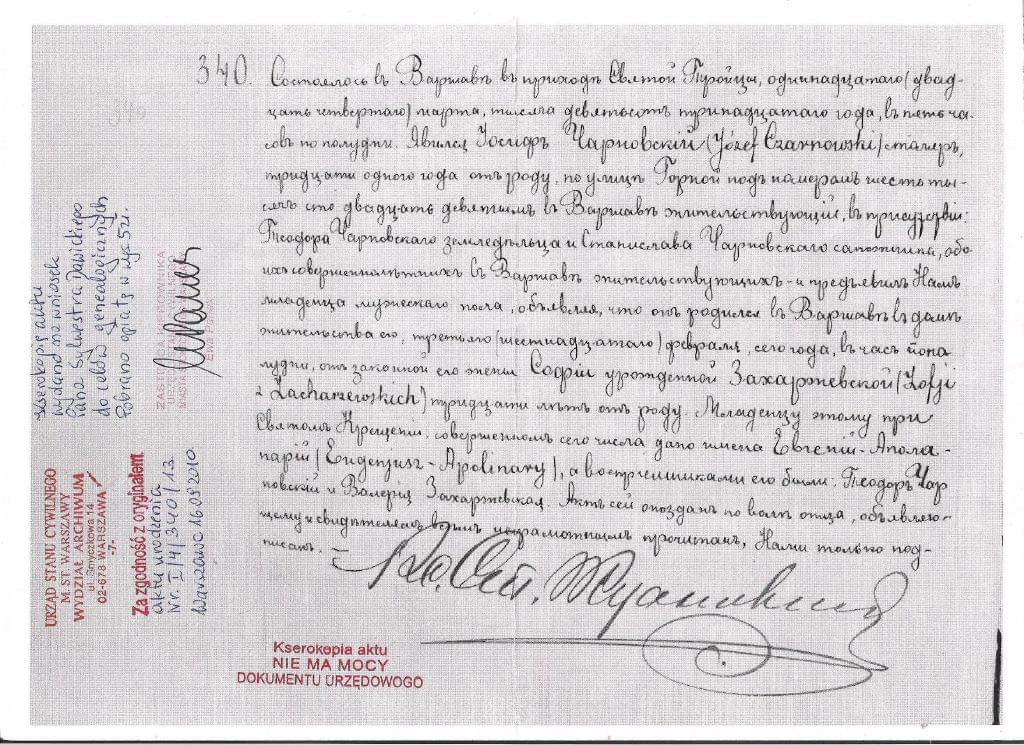 340.
Состоялось въ Варшавѣ въ приходѣ Святой Троицы, одиннадцатаго (двад-
цать четвертаго) марта, тысяча девятьсотъ тринадцатаго года, въ пять ча-
совъ по полудни. Явился Іосифъ Чарновскій (Józef Czarnowski) столяръ,
тридцати одного года отъ роду, по улицѣ Горной подъ номеромъ шесть ты-
сячъ сто двадцать девятымъ въ Варшавѣ жительствующій, въ присутствіи:
Теодора Чарновскаго земледѣльца и Станислава Чарновскаго сапожника, обо-
ихъ совершеннолѣтнихъ въ Варшавѣ жительствующихъ - и предъявилъ Намъ
младенца мужескаго пола, объявляя, что онъ родился въ Варшавѣ въ домѣ
жительства его, третьяго (шестнадцатаго) февраля, сего года, въ часъ по по-
лудни, отъ законной его жены Софіи урожденной Захаржевской (Zofji
z Zacharzewskich) тридцати лѣтъ отъ роду. Младенцу этому при
Святомъ Крещеніи, совершенномъ сего числа дано имена Евгеній-Апола-
парій (Eugenjusz-Apolinary), а воспріемниками его были: Теодоръ Чар
новскій и Валерія Захаржевская. Актъ сей опозданъ по волѣ отца, объявляю-
щему и свидѣтелямъ всѣмъ неграмотнымъ прочитанъ, Нами только под-
писанъ. =
Кс.
Kserokopię aktu
wydano na wniosek
Pana Sylwestra
do celów genealogicznych
Pobrano opłatę w wys. 5 zł.
URZĄD STANU CYWILNEGO
M. ST. WARSZAWY
WYDZIAŁ ARCHIWUM
ul. Smyczkowa 14
02-678 WARSZAWA
-7-
Za zgodność z oryginałem
aktu urodzenia
Nr. I/4/340/13
Warszawa 16.09.2010
Kserokopia aktu
NIE MA MOCY
DOKUMENTU URZĘDOWEGO